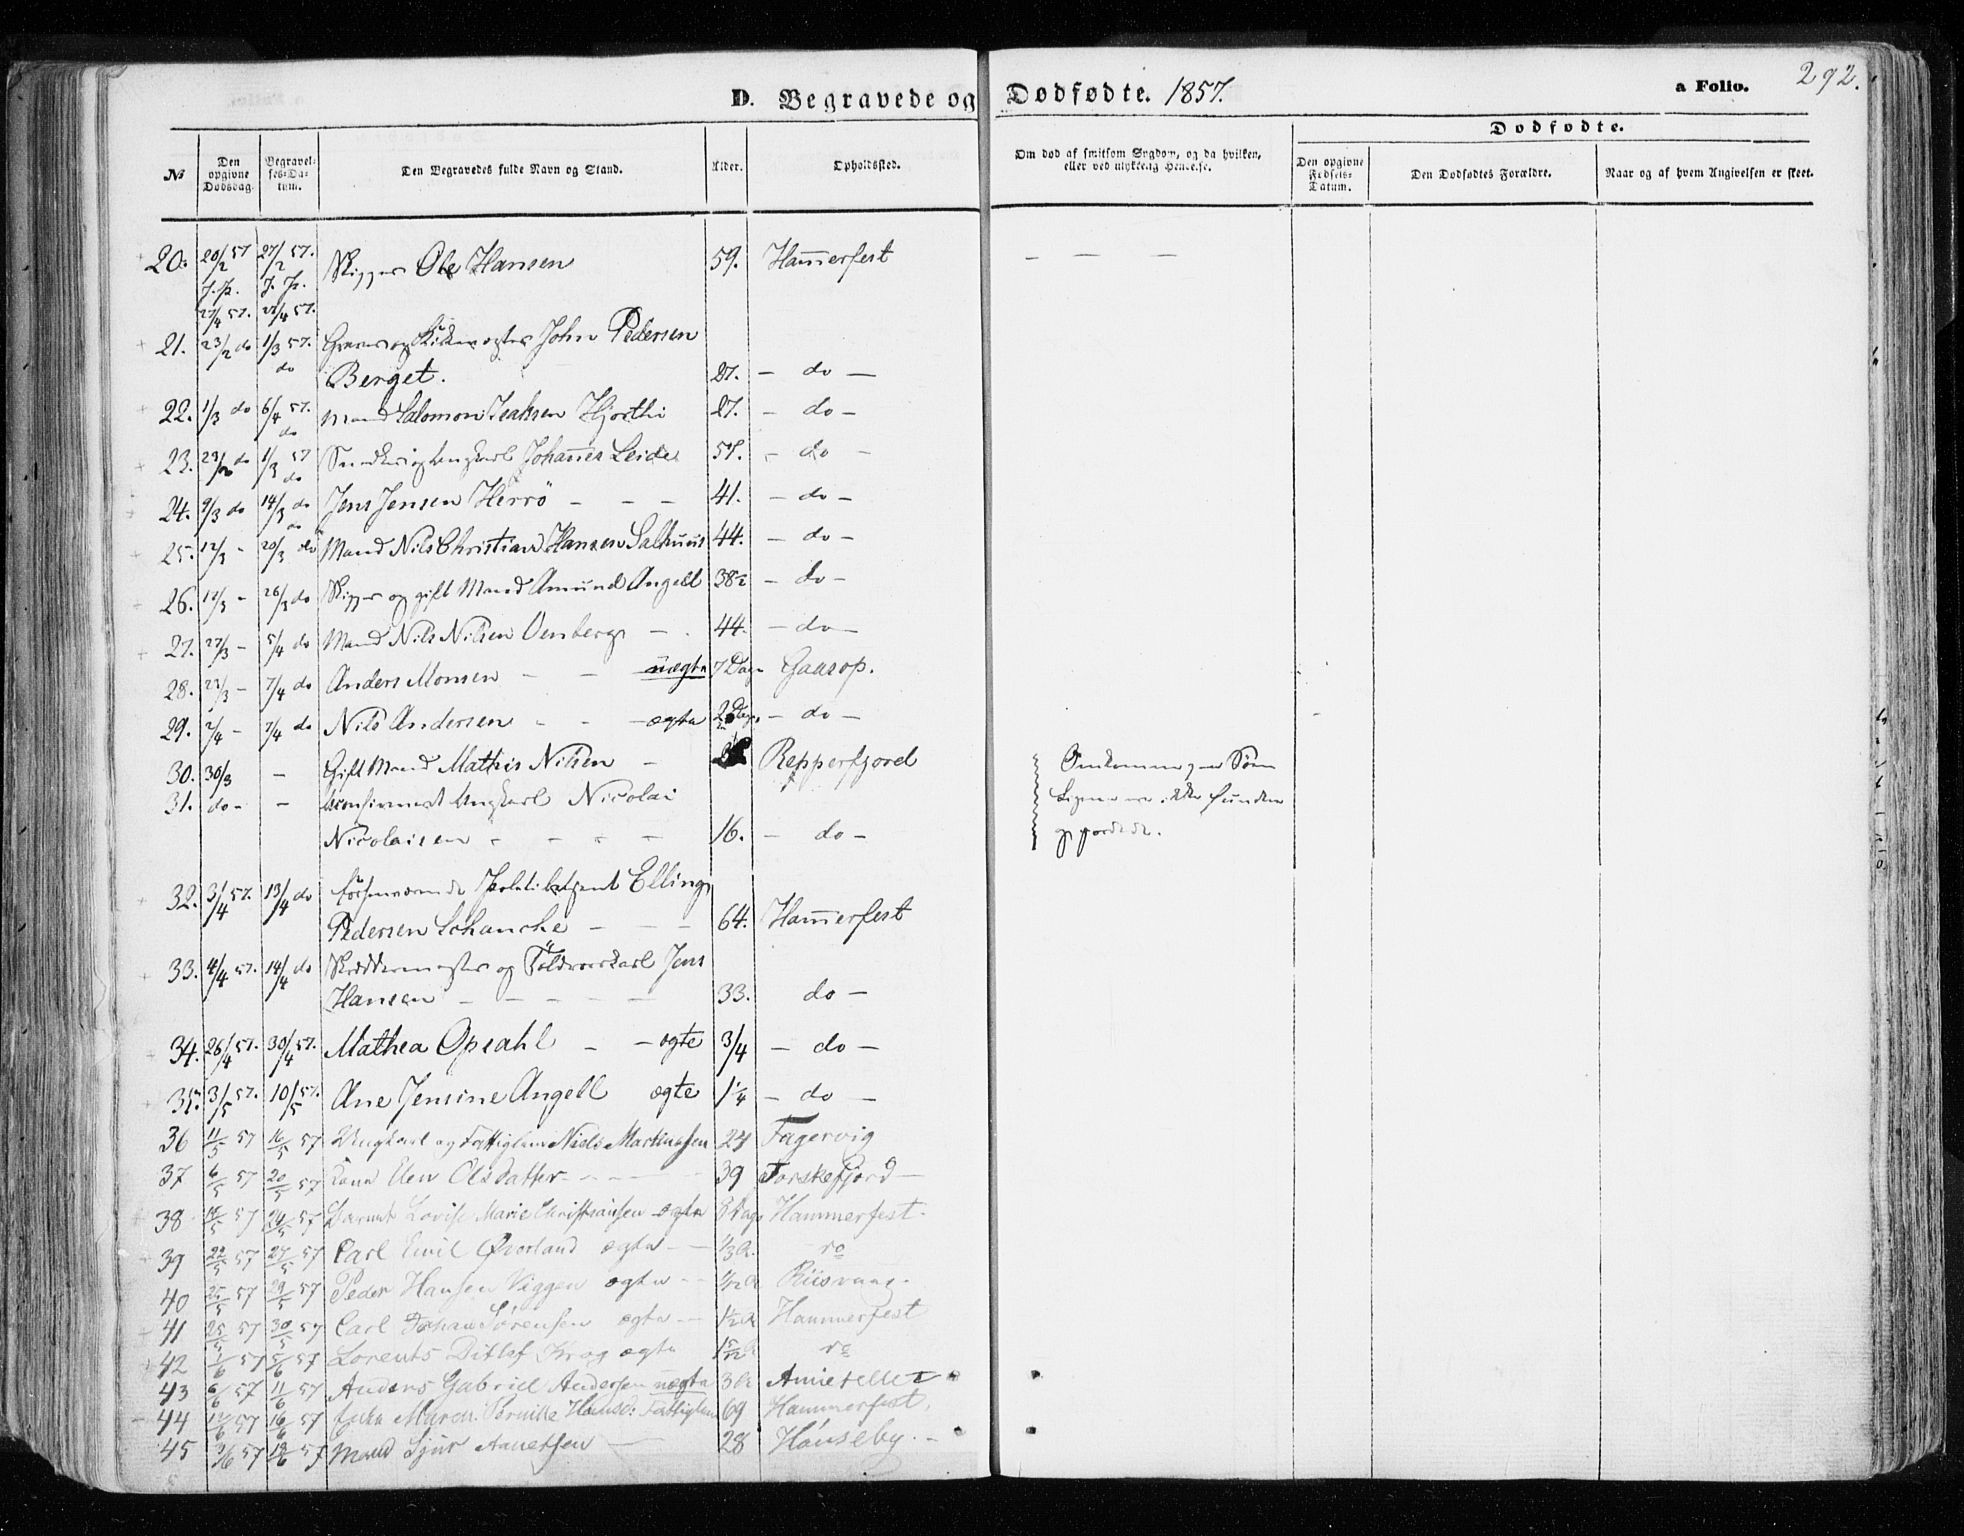 292.
D. Begravede og Dødfødte. 1857. a Folio.
Dødfødte.
No Den opgivne Dødsdag. Begravelses-Datum. Den Begravedes fulde Navn og Stand. Alder. Opholdssted. Om død af smitsom Sygdom, og da hvilken, eller ved ulykkelig Hendelse. Den opgivne Fødsels-Datum. Den Dødfødtes Forældre. Naar og af hvem Angivelsen er skeet.
20. 20/2 57 27/2 57. Skipper Ole Hansen 59. Ham̄erfest — — —
J. P. J. P.
27/4 57. 27/4 57.
21. 23/2 do 1/3 57. John Pedersen
do Berget. 27. — do —
22. 1/3 do 6/4 57. Mand Salomon Isaksen Hjorthi 27. — do —
do
23. 23/2 do 1/3 57 Ungkarl Johannes Leide 57. — do —
do
24. 9/3 do 14/3 do Jens Jensen Herrö — — — 41. — do —
25. 12/3 — 20/3 do Mand Nils Christian Hansen Salhuus 44. — do —
26. 12/3 — 26/3 do Skipper og gift Mand Amund Angell 38½ — do —
27. 27/3 — 5/4 do Mand Nils Nilsen — 44. — do —
28. 27/3 — 7/4 do Anders Monsen — — uægte 7 Dage Gaasop.
29. 2/4 — 7/4 do Nils Andersen — — ægte Dage — do —
30. 30/3 — Gift Mand Mathis Nilsen — Repperfjord Omkomne paa Søen
31. do — — konfirmert Ungkarl Nicolai Ligene ere ikke fundne
Nicolaisen — — — — 16. — do — og jordede.
32. 3/4 57. 13/4 do forhenværende Politibetjent Elling
Pedersen Schanche — — — 64. Ham̄erfest
33. 4/4 57. 14/4 do Skreddermester og Jens
Hansen — — — — — 33. do —
34. 26/4 57. 30/4 57. Mathea Opsahl — — ægte 3/4 — do —
35. 3/5 57. 10/5 57. Ane Jensine Angell ægte 1¼ — do —
36 11/5 57 16/5 57 Ungkarl og Fattiglem Niels Martinussen 24 Fagervig
37 6/5 57 20/5 57 Kona Olsdatter — — — 39 Torskefjord —
38 57 24/5 57 Lovise Marie Christiansen ægte 8 Dage Hammerfest.
39 22/5 57 27/5 57 Carl Emil Øverland ægte — — do
40 25/5 57 29/5 57 Peder Hansen Viggen ægte — — Riisvaag.
41 25/5 57 30/5 57 Carl Johan Sørensen ægte — — Hammerfest
42 57 5/6 57 Lorents Ditlef Krog ægte do
43 6/6 57 11/6 57 Anders Gabriel Andersen uægte
44 12/6 57 16/6 57 Enke Maren Pernille Hansd: Fattiglem 69 Hammerfest,
45 57 19/6 57 Mand Sjur — 28 Hønseby. —